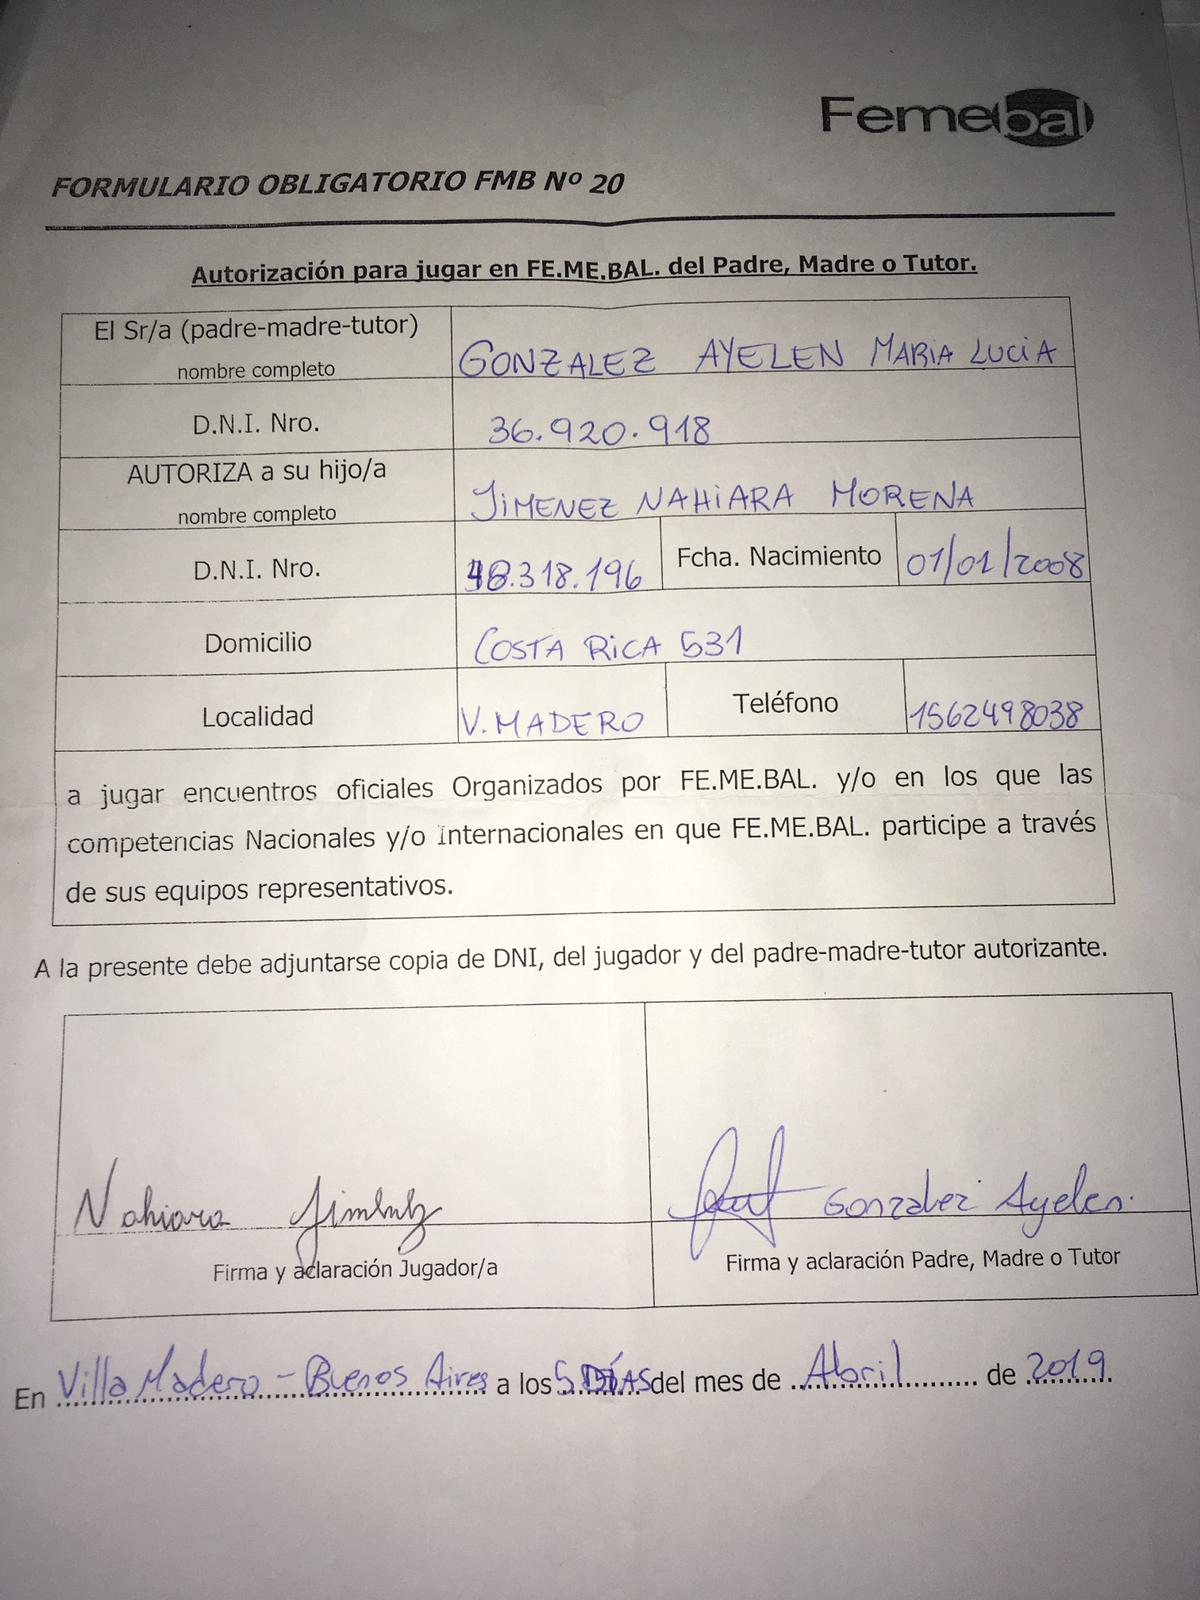 Femebal
FORMULARIO OBLIGATORIO FMB Nº 20
Autorización para jugar en FE.ME.BAL. del Padre, Madre o Tutor.
El Sr/a (padre-madre-tutor)
nombre completo
GONZALEZ AYELEN MARIA LUCIA
D.N.I. Nro.
36.920.918
AUTORIZA a su hijo/a
nombre completo
JIMENEZ NAHIARA MORENA
D.N.I. Nro.
48.318.196
Fcha. Nacimiento
01/01/2008
Domicilio
COSTA RICA 531
Localidad
V. MADERO
Teléfono
1562498038
a jugar encuentros oficiales Organizados por FE.ME.BAL. y/o en los que las
competencias Nacionales y/o Internacionales en que FE.ME.BAL. participe a través
de sus equipos representativos.
A la presente debe adjuntarse copia de DNI, del jugador y del padre-madre-tutor autorizante.
Nahiara Jimenez
Firma y aclaración Jugador/a
Gonzalez Ayelen.
Firma y aclaración Padre, Madre o Tutor
En Villa Madero - Buenos Aires a los 5 DÍAS del mes de Abril de 2019